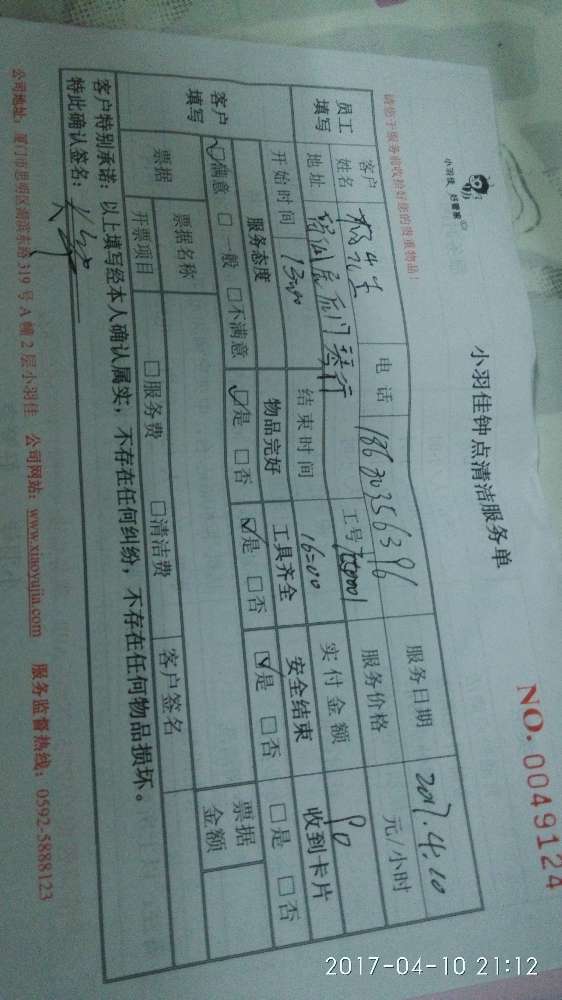 小羽佳 好管家
小羽佳钟点清洁服务单
NO. 0049124
请您于服务前收拾好您的贵重物品!
员工填写
客户姓名 电话 18630356396 服务日期 2017.4.10
地址 后门 工号 服务价格 元/小时
开始时间 13:00 结束时间 16:00 实付金额 90
客户填写
服务态度 物品完好 工具齐全 安全结束 收到卡片
☑满意 □一般 □不满意 ☑是 □否 ☑是 □否 ☑是 □否 □是 □否
票据 票据名称 票据金额
开票项目 □服务费 □清洁费 客户签名
客户特别承诺:以上填写经本人确认属实,不存在任何纠纷,不存在任何物品损坏。
特此确认签名:
公司地址:厦门市思明区湖滨东路319号A幢2层小羽佳 公司网站:www.xiaoyujia.com 服务监督热线:0592-5888123
2017-04-10 21:12